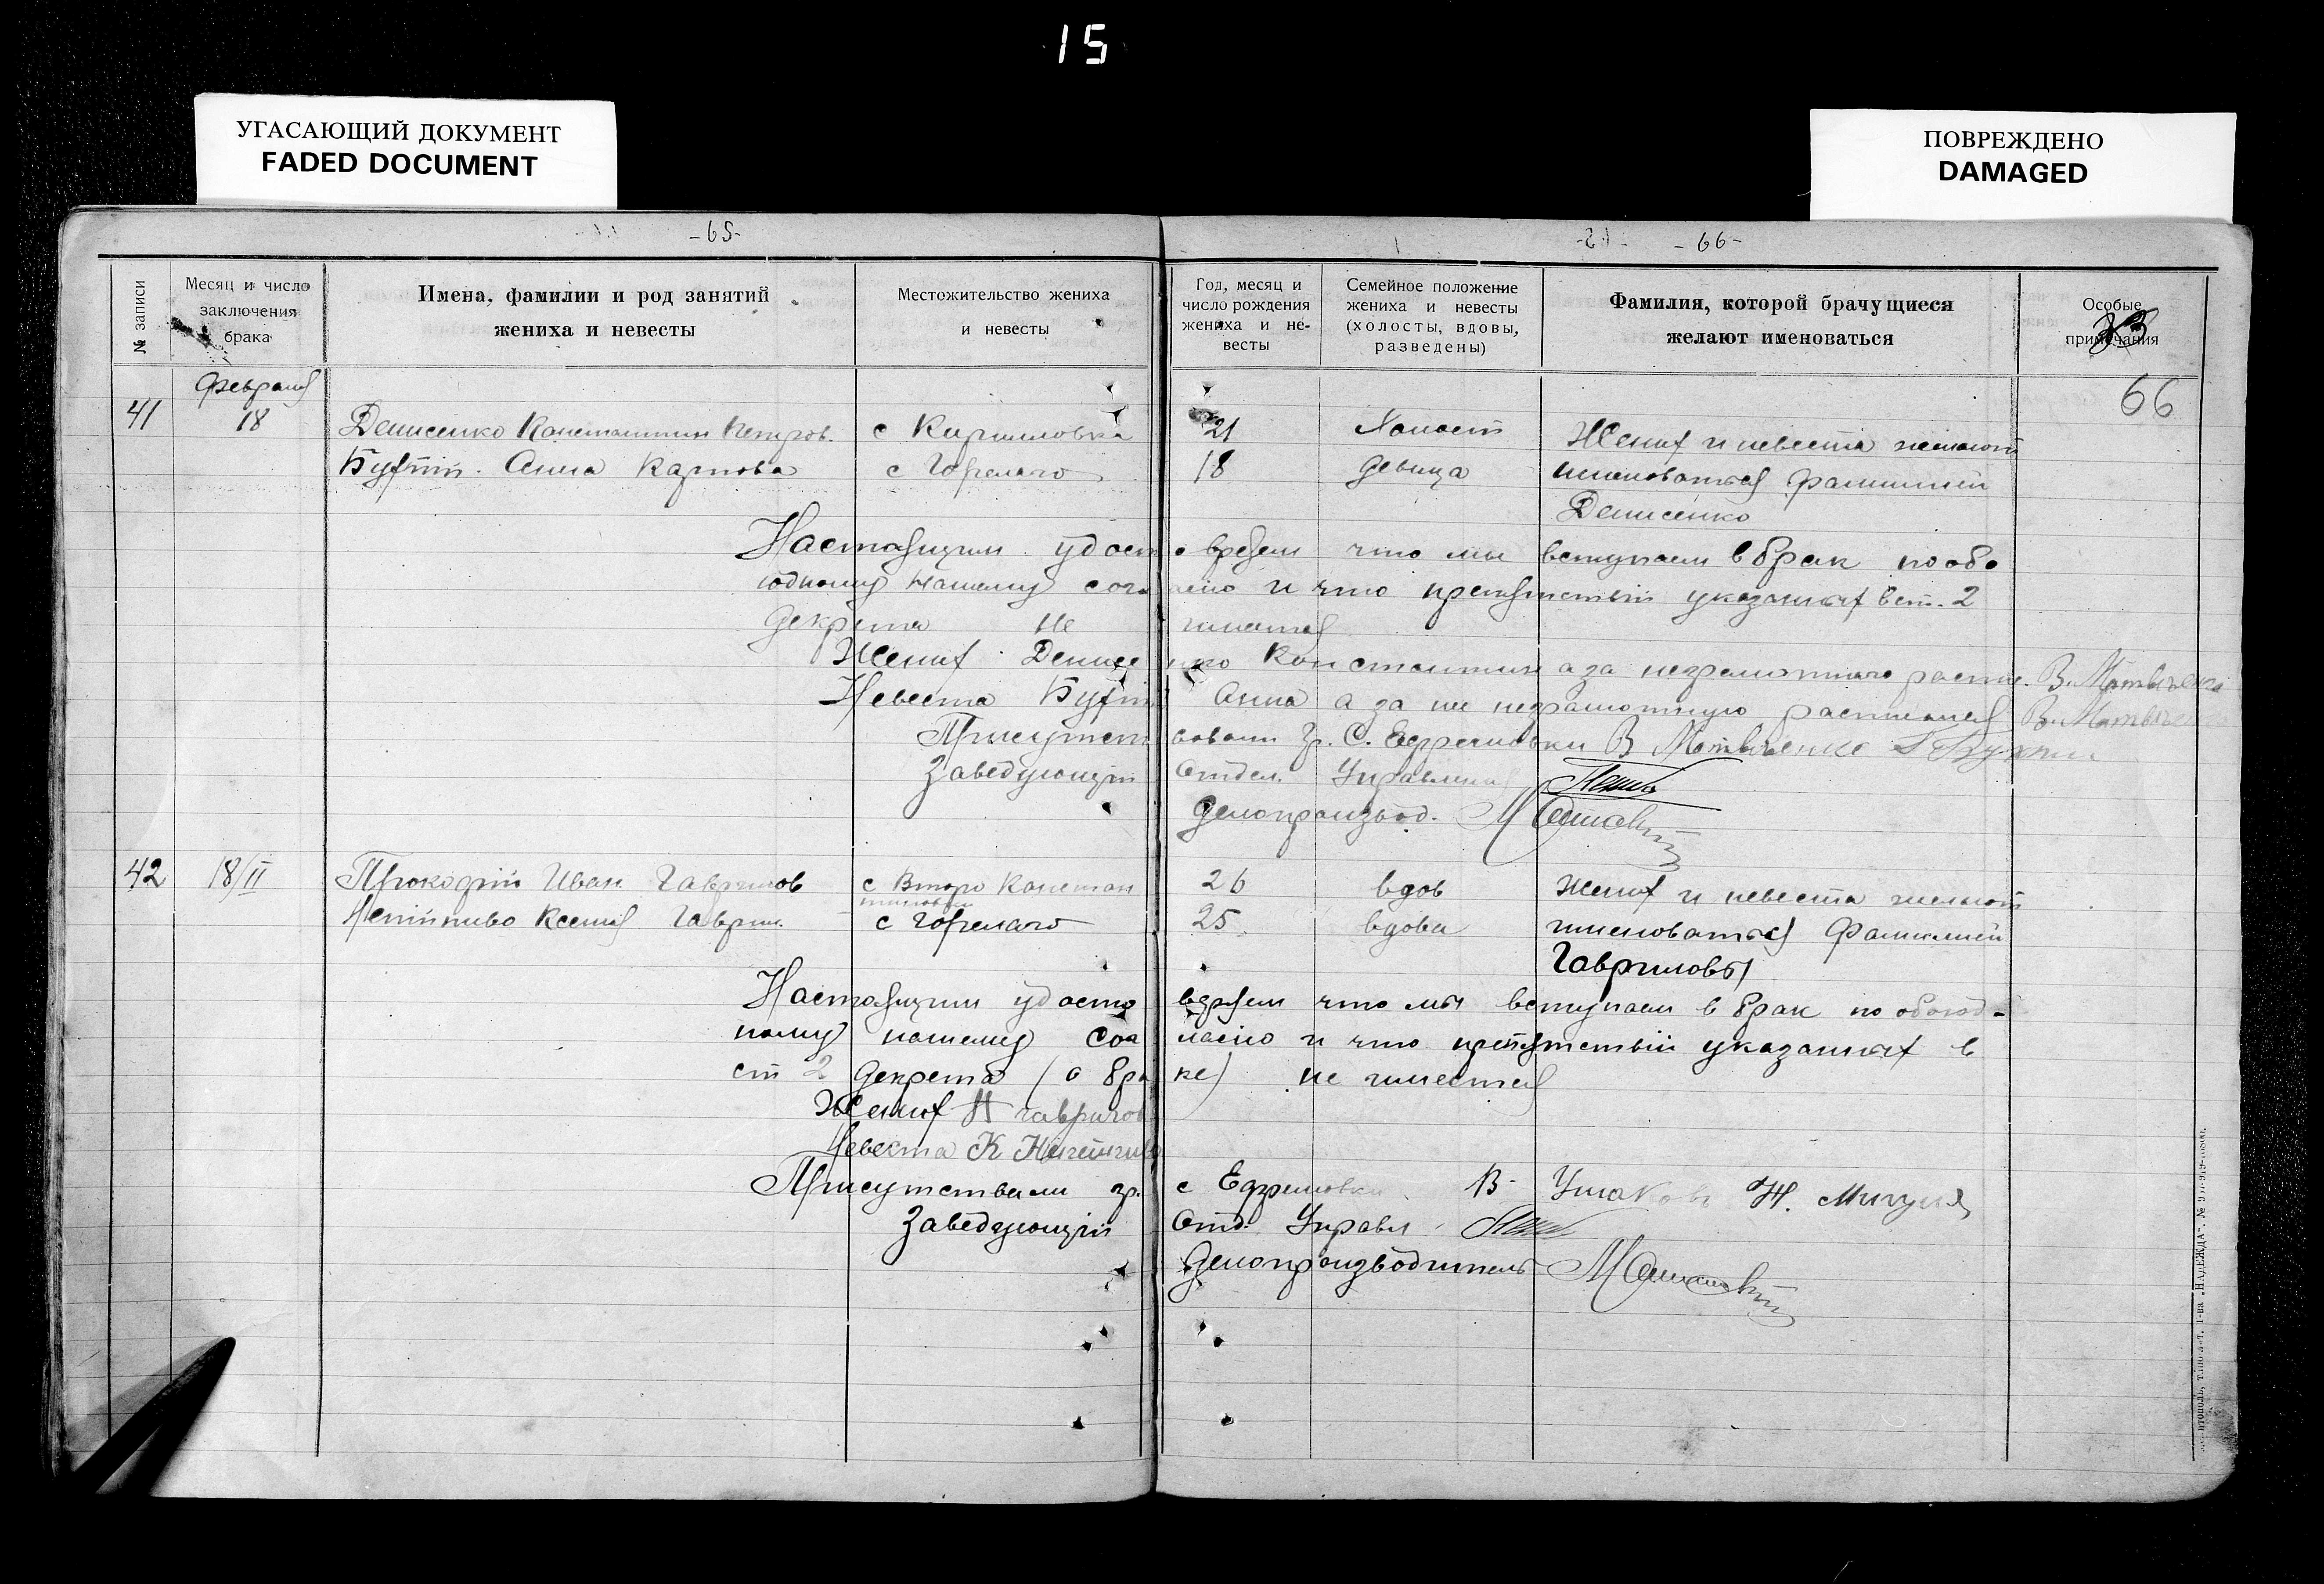 15
УГАСАЮЩИЙ ДОКУМЕНТ
FADED DOCUMENT
ПОВРЕЖДЕНО
DAMAGED
-65-
-66-
№ записи
Месяц и число заключения брака
Имена, фамилии и род занятий жениха и невесты
Местожительство жениха и невесты
Год, месяц и число рождения жениха и невесты
Семейное положение жениха и невесты (холосты, вдовы, разведены)
Фамилия, которой брачущиеся желают именоваться
Особые примечания
66
февраля
41 18 Денисенко Константин Петров. с Кирилловка 21 Холост Жених и невеста желают
Анна Карпова с Горелаго 18 девица именоваться фамилией
Денисенко
Настоящим удостоверяем что мы вступаем в брак по обо
юдному нашему согласию и что препятствий указаных в ст. 2
декрета не имеется
Жених Денисенко Константин а за неграмотнаго распис. В. Матвиенко
Невеста Анна а за ни неграмотную расписался В. Матвиенко
Присутствовали гр. С. Ефремовки В Матвиенко
Заведующий Отдел. Управления
Делопроизвод.
42 18/II Прокофий Иван Гаврилов с Второ Констан 26 вдов Жених и невеста желают
тиновки
Ксения Гаврил. с Горелаго 25 вдова именоваться фамилией
Гавриловы
Настоящим удостоверяем что мы вступаем в брак по обоюд-
ному нашему согласию и что препятствий указаных в
ст 2 декрета (о браке) не имеется
Жених Гаврилов
Невеста К
Присутствали гр. с Ефремовки В. Ушаков Н.
Заведующий Отд. Управл
Делопроизводитель